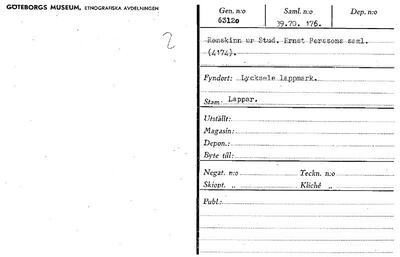 GÖTEBORGS MUSEUM, ETNOGRAFISKA AVDELNINGEN
2
Gen. n:o Saml. n:o Dep. n:o
63120 39.70. 176.
Renskinn ur Stud. Ernst Perssons saml.
(4174).
Fyndort: Lycksele lappmark.
Stam: Lappar.
Utställt:
Magasin:
Depon.:
Byte till:
Negat. n:o Teckn. n:o
Skiopt. „ Kliché „
Publ.: